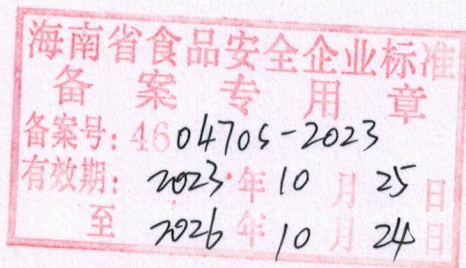 海南省食品安全企业标准
备案专用章
备案号：4604705-2023
有效期：2023年10月25日
至 2026年10月24日